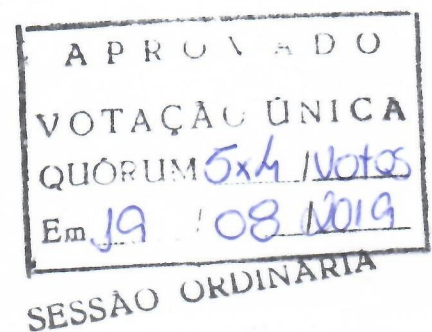 APROVADO
VOTAÇÃO ÚNICA
QUÓRUM 5x4 / Votos
Em 19 / 08 / 2019
SESSÃO ORDINÁRIA